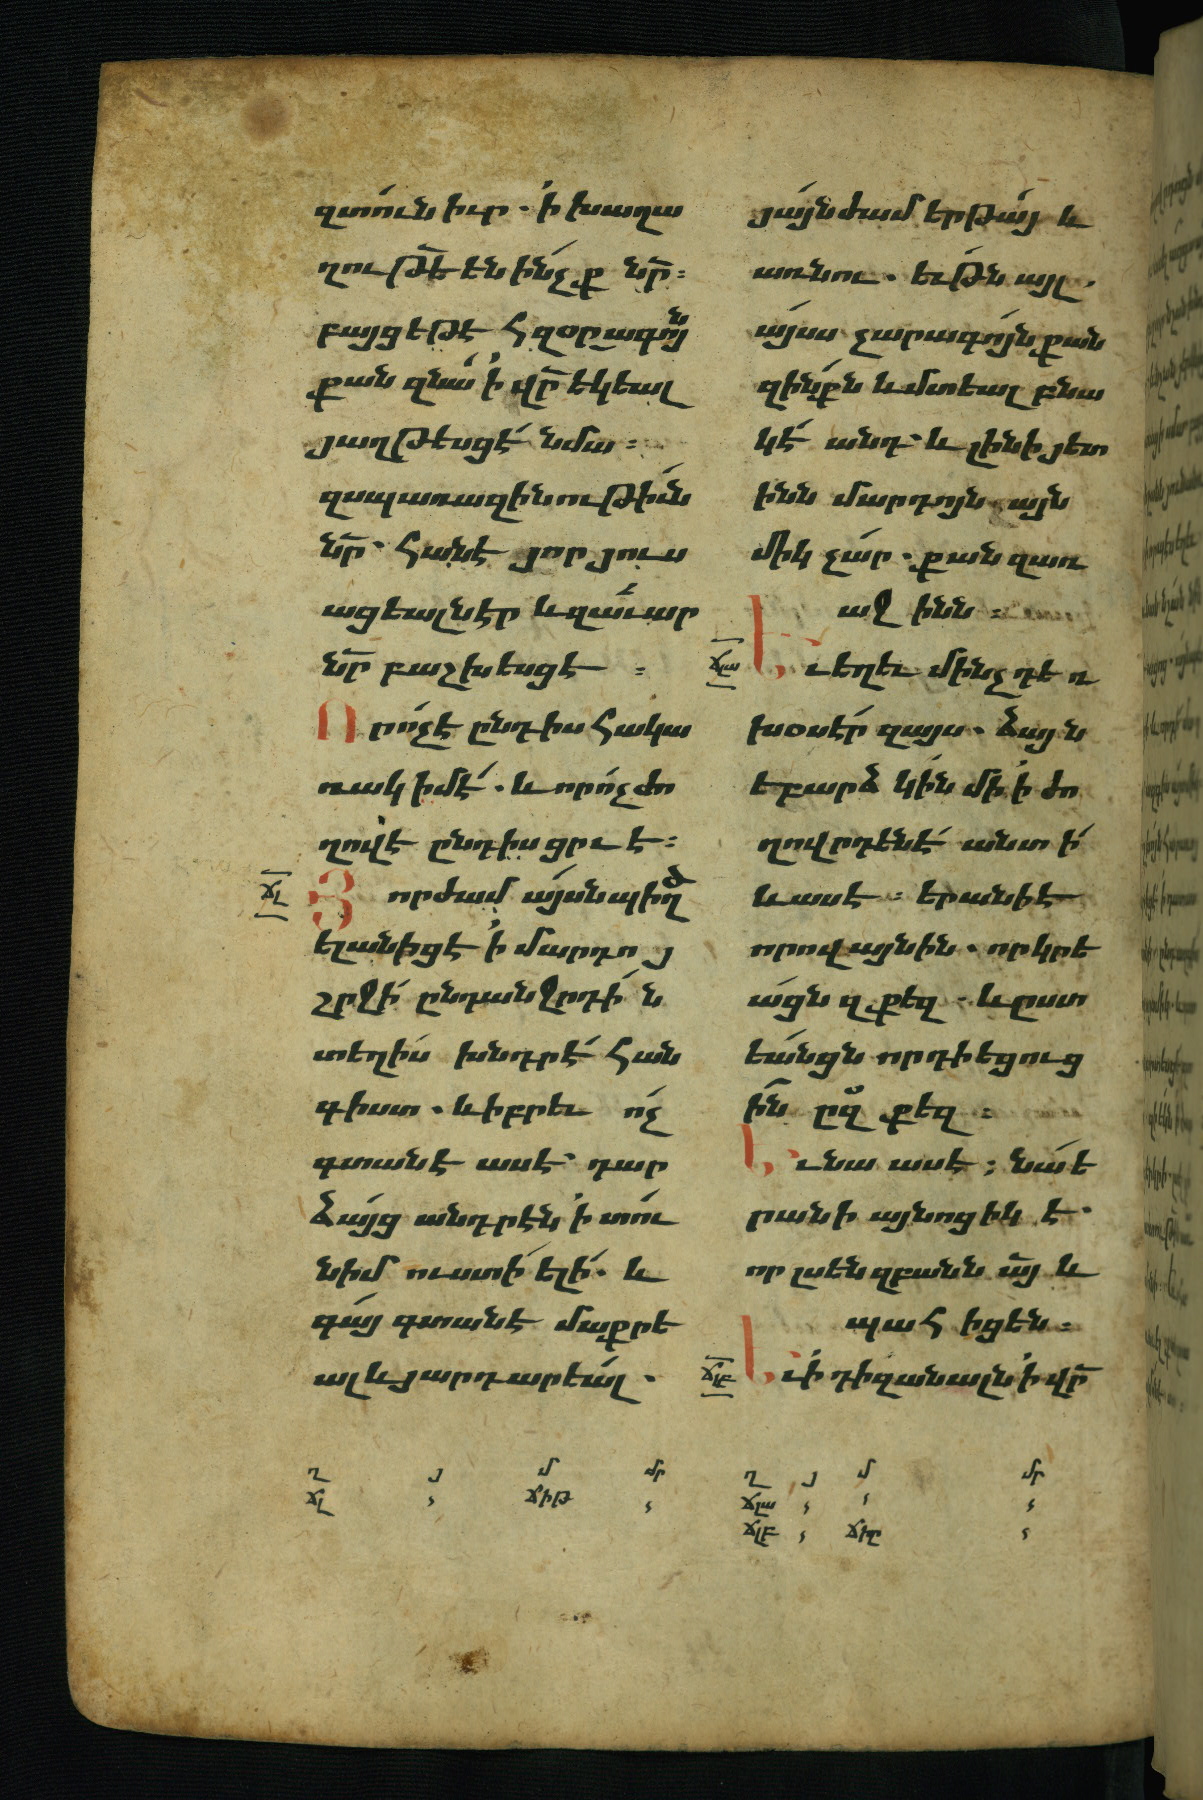 զտուն իւր . ՚ի խաղա
ղութե են ինչք նր ։
բայց եթէ հզօրագոյն
քան զնա ՚ի վր եկեալ
յաղթեսցէ նմա ։
զսպառազինութիւն
նր . հանէ յոր յուս
ացեալն էր և զաւար
նր բաշխեսցէ ։
Որ ոչ է ընդ իս հակա
ռակ իմ է . և որ ոչ ժո
ղովէ ընդ իս ցրւէ ։
ճլ Յորժամ այսն պիղծ
ելանիցէ ՚ի մարդոյ
շրջի ընդ անջրդին
տեղիս խնդրէ հան
գիստ . և իբրև ոչ
գտանէ ասէ ՝ դար
ձայց անդրէն ՚ի տու
ն իմ ուստի ելի . և
գայ գտանէ մաքրե
ալ և յարդարեալ .
յայնժամ երթայ և
առնու . եւթն այլ .
այսս չարագոյն քան
զինքն և մտեալ բնա
կէ անդ ՝ և լինի յետ
ինն մարդոյն այն
միկ չար . քան զառ
աջինն ։
ճլա Եւ եղեւ մինչդեռ
խօսէր զայս . ձայն
ե բարձ կին մի ՚ի ժո
ղովրդենէ անտի
և ասէ ։ երանի է
որովայնին . որ կրե
ացն զքեզ . և ըստ
եանցն որ դիեցուց
ին ըզ քեզ ։
Եւ նա ասէ ; նա ե
րանի այնոցիկ է .
որ լսեն զբանն այ և
պահիցեն ։
ճլբ Եւ ՚ի դիզանալն ՚ի վր
ղ յ մ մր
ճլ , ճիթ ,
ղ յ մ մր
ճլա , , ,
ճլբ , ճիը ,